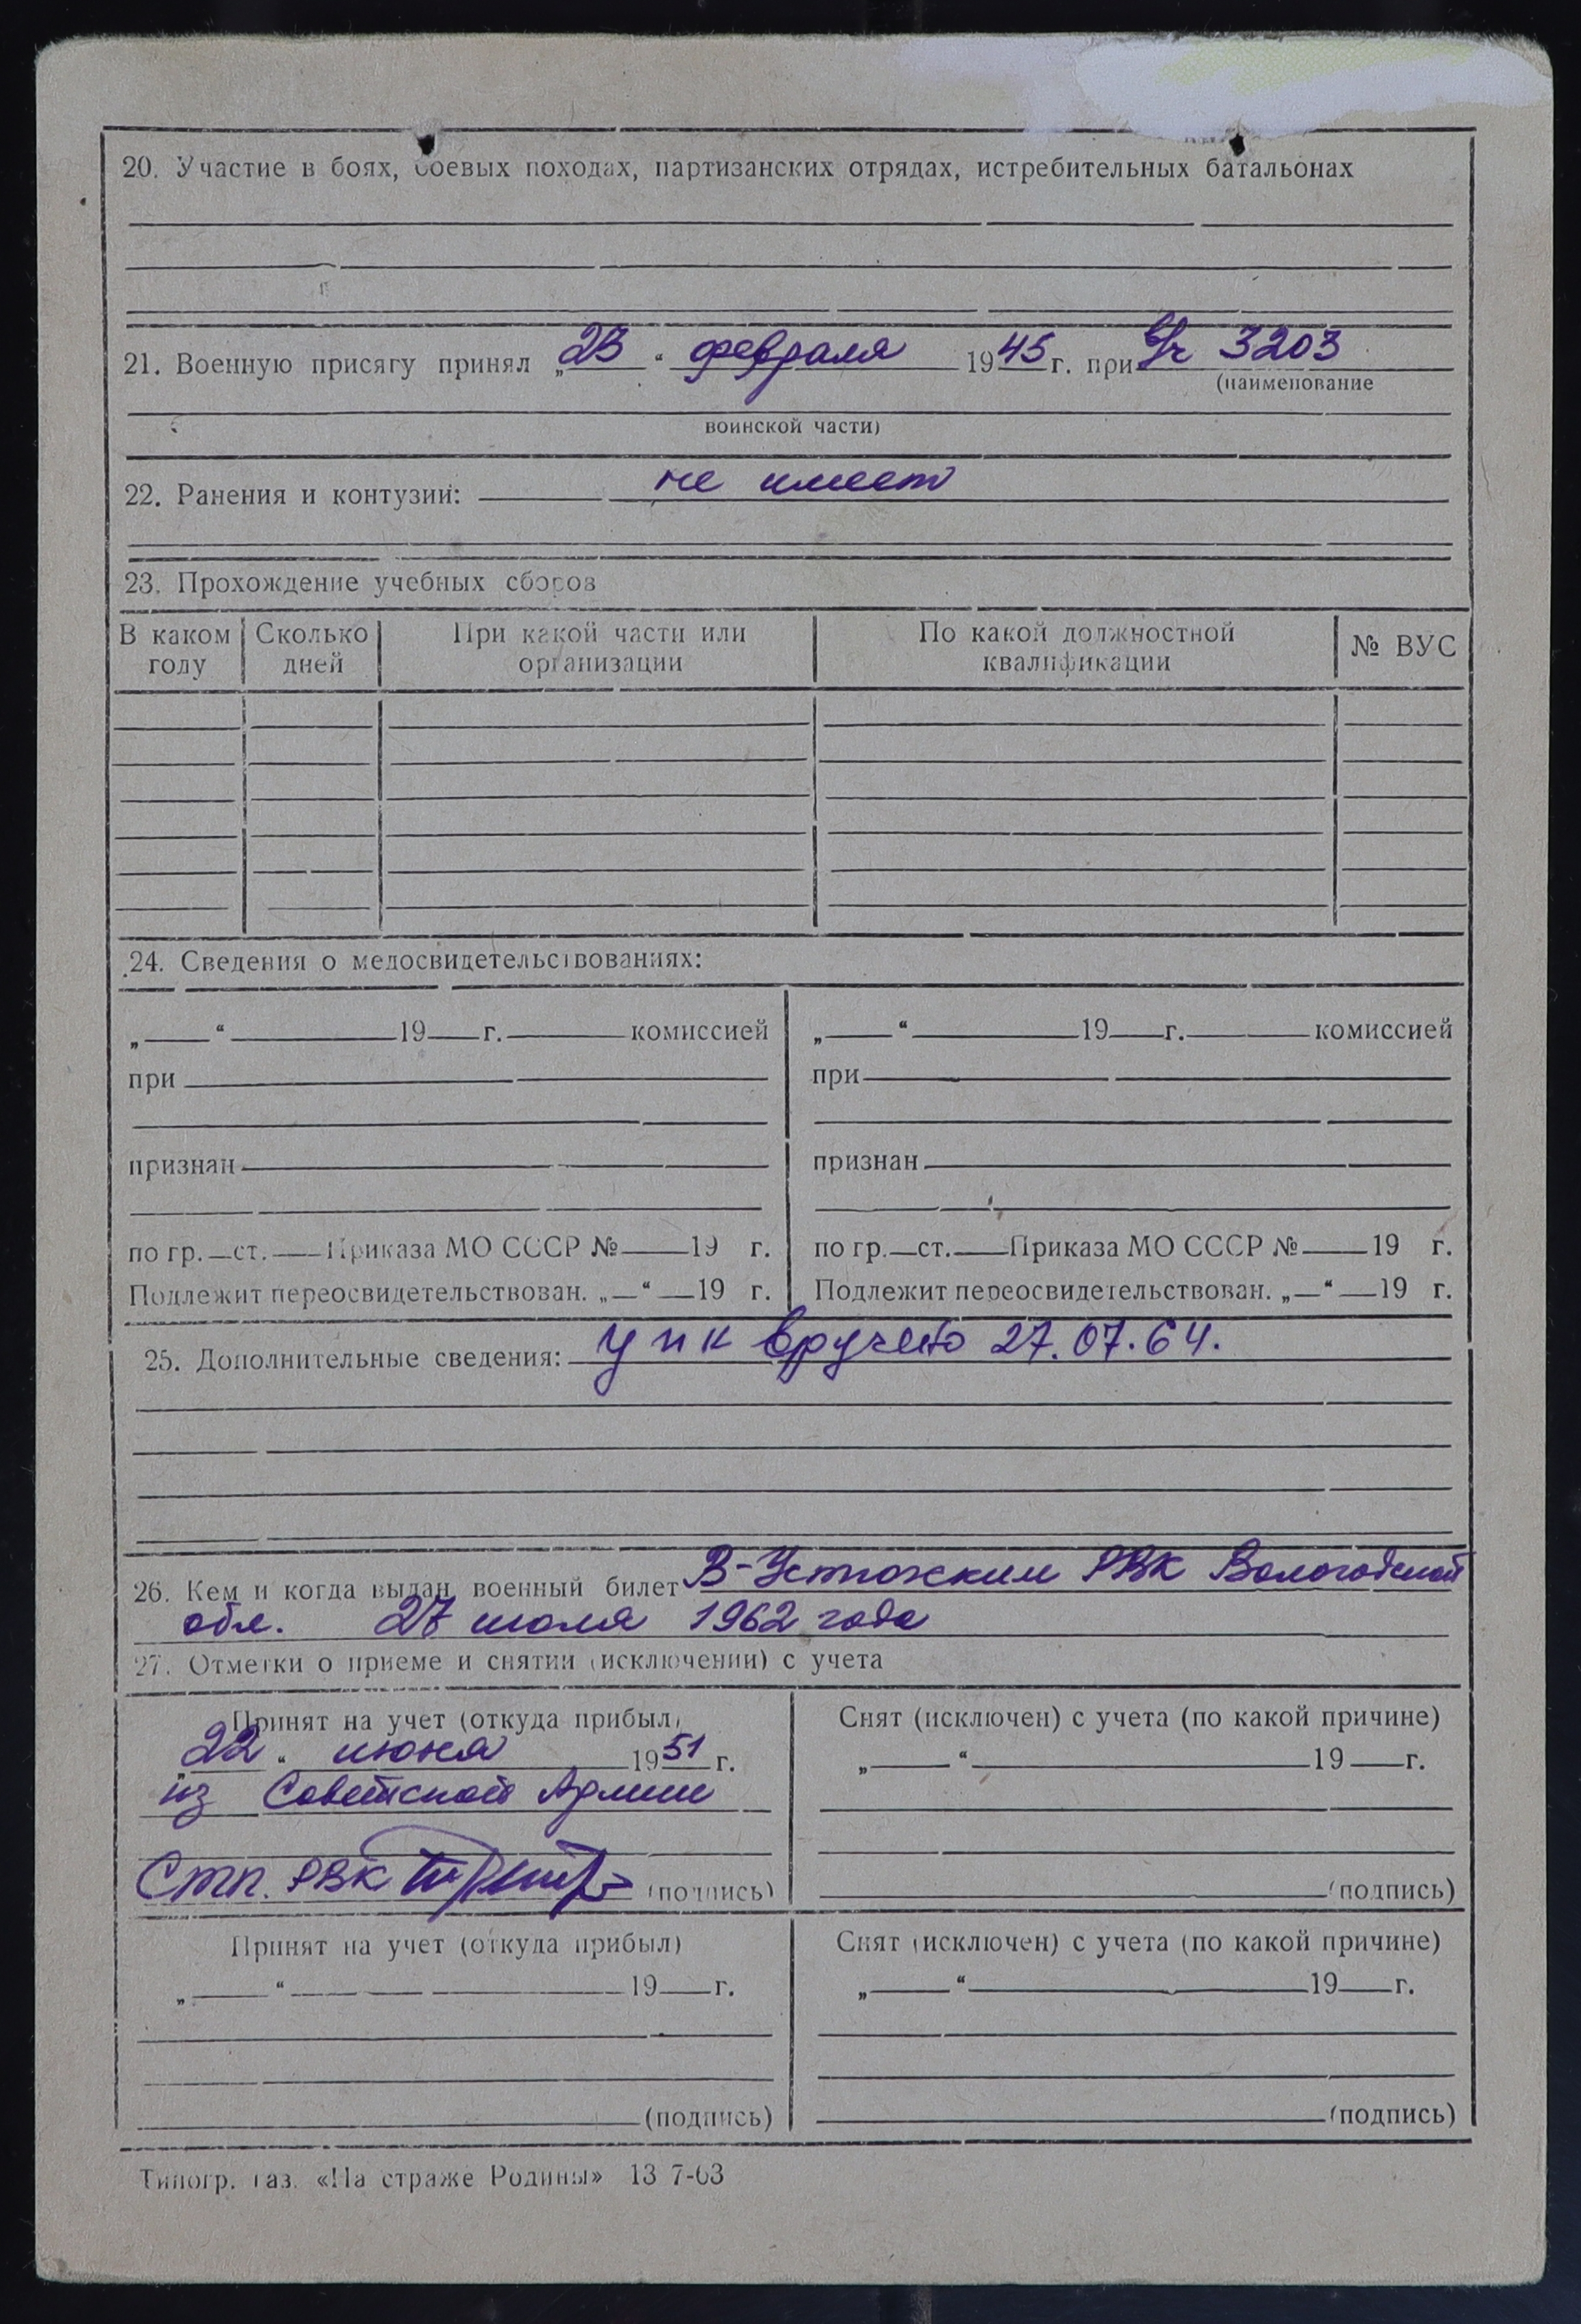 20. Участие в боях, боевых походах, партизанских отрядах, истребительных батальонах
21. Военную присягу принял „23“ февраля 1945 г. при в/ч 3203
(наименование
воинской части)
22. Ранения и контузии: не имеет
23. Прохождение учебных сборов
В каком году Сколько дней При какой части или организации По какой должностной квалификации № ВУС
24. Сведения о медосвидетельствованиях:
„ “ 19 г. комиссией „ “ 19 г. комиссией
при при
признан признан
по гр. ст. Приказа МО СССР № 19 г. по гр. ст. Приказа МО СССР № 19 г.
Подлежит переосвидетельствован. „ “ 19 г. Подлежит переосвидетельствован. „ “ 19 г.
25. Дополнительные сведения: упк вручено 27.07.64.
26. Кем и когда выдан военный билет В-Устюжским РВК Вологодской
обл. 27 июля 1962 года
27. Отметки о приеме и снятии (исключении) с учета
Принят на учет (откуда прибыл) Снят (исключен) с учета (по какой причине)
„22“ июня 1951 г. „ “ 19 г.
из Советской Армии
Стп. РВК (подпись) (подпись)
Принят на учет (откуда прибыл) Снят (исключен) с учета (по какой причине)
„ “ 19 г. „ “ 19 г.
(подпись) (подпись)
Типогр. газ. «На страже Родины» 13 7-63